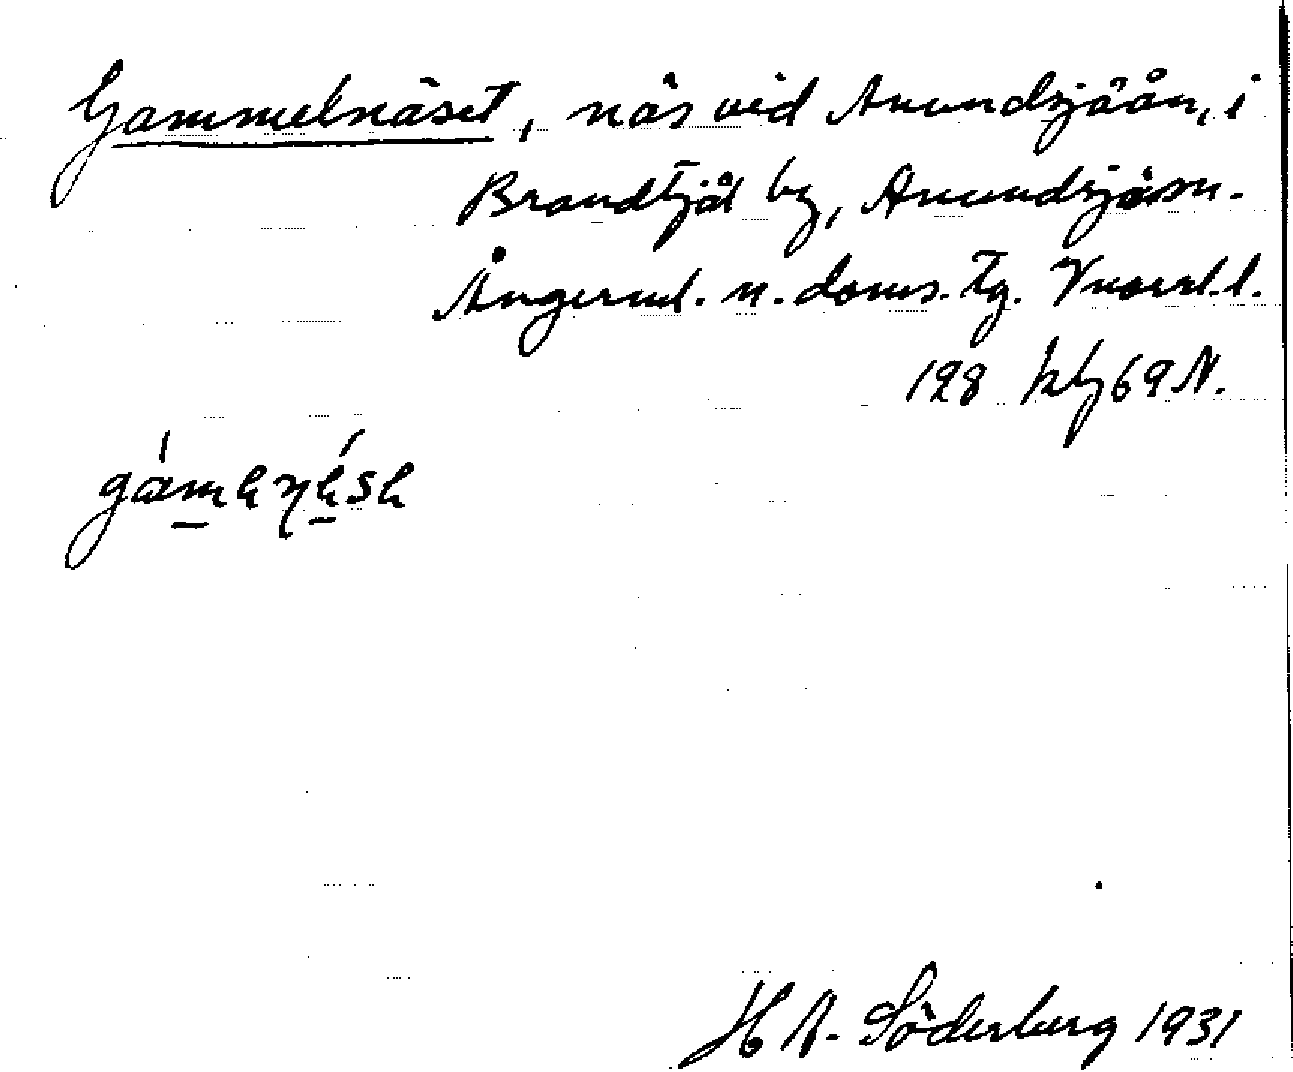 Gammelnäset, näs vid Anundsjöån, i
Brandtjäl by, Anundsjö sn.
Ångerml. n. doms. tg. Vnorrl. l.
128 kbj 69 N.
H A. Söderberg 1931